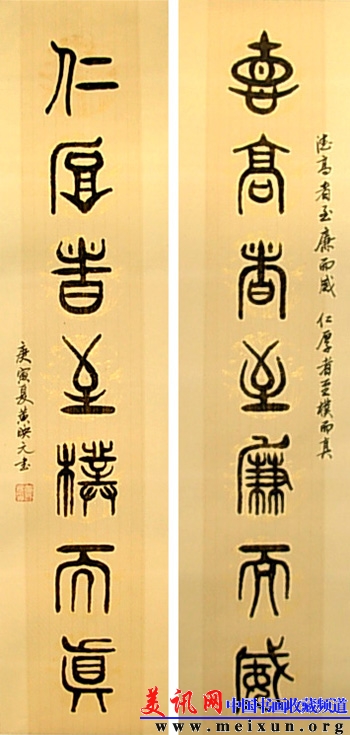 悳高者至廉而威
德高者至廉而威 仁厚者至樸而真
仁厚者至樸而真
庚寅夏黄洪元书
美讯网 中国书画收藏频道
www.meixun.org